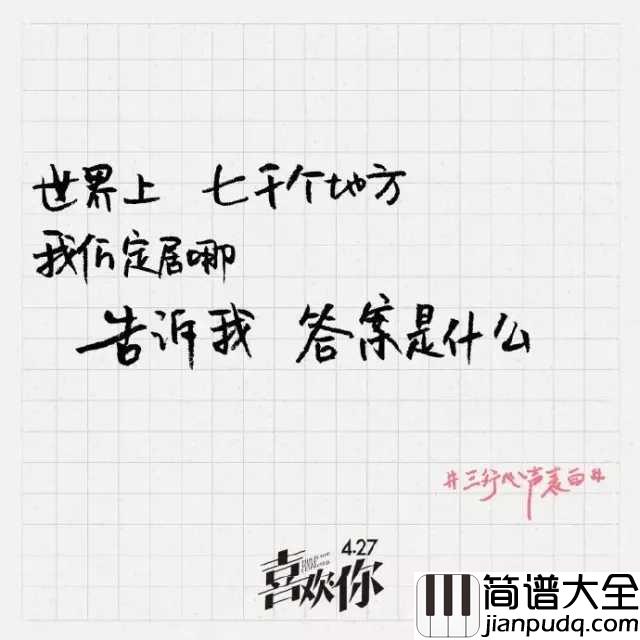 世界上 七千个地方
我们定居哪
告诉我 答案是什么
#三行心声表白#
4.27
喜欢·你
简谱大全
jianpudq.com